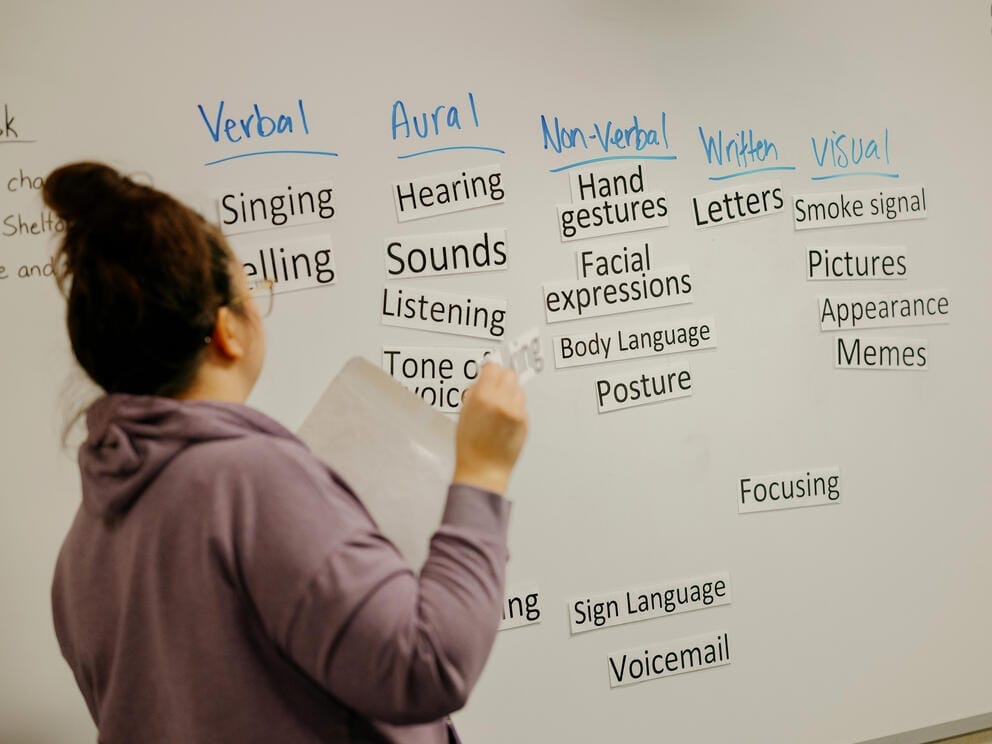 Verbal
Singing
Aural
Hearing
Sounds
Listening
Tone of
Non-Verbal
Hand
gestures
Facial
expressions
Body Language
Posture
Written
Letters
Visual
Smoke signal
Pictures
Appearance
Memes
Focusing
Sign Language
Voicemail